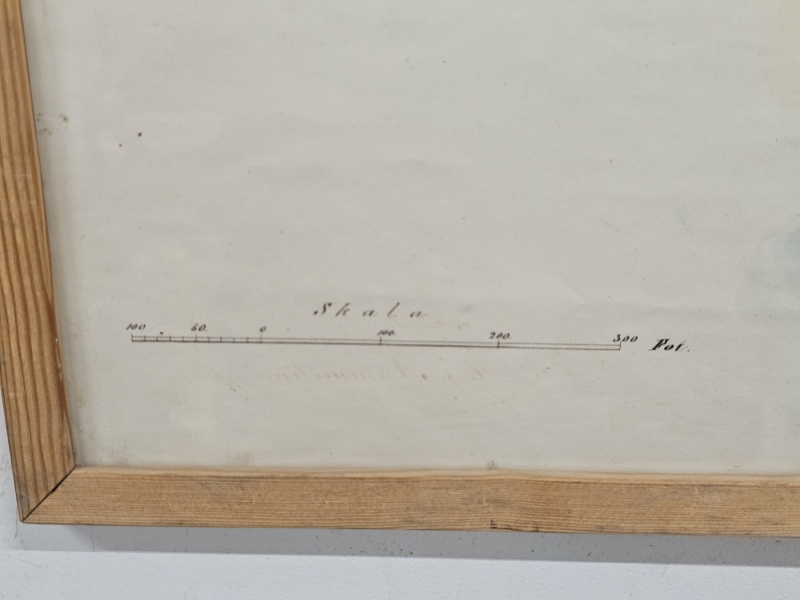 Skala
100 50. 0 100. 200. 300 Fot.